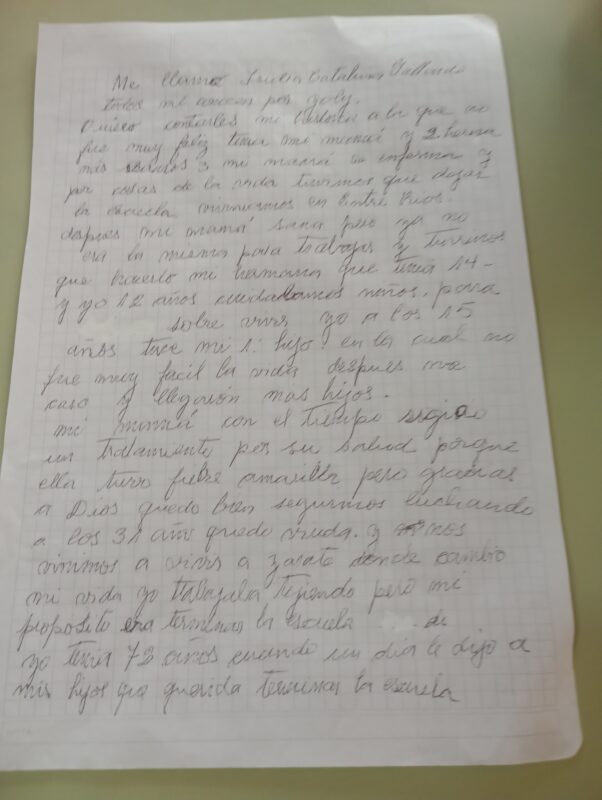 Me llamo Catalina Gallardo
todos me conocen por yoly.
Quiero contarles mi historia a la que no
fue muy feliz tenia mi mamá y 2 herma
más eramos 3 mi mamá se enferma y
por cosas de la vida tuvimos que dejar
la escuela vivivamos en Entre Rios.
despues mi mamá sana pero ya no
era la misma para trabajar y tuvimos
que hacerlo mi hermana que tenia 14-
y yo 12 años cuidabamos niños. para
sobre vivir yo a los 15
años tuve mi 1: hijo: en la cual no
fue muy facil la vida despues me
caso y llegarón mas hijos.
mi mamá con el tiempo sigio
un tratamiento por su salud porque
ella tuvo fiebre amarilla pero gracias
a Dios quedo bien seguimos luchando
a los 31 año quedo viuda. y nos
vinimos a vivir a zarate donde cambio
mi vida yo trabajaba tejiendo pero mi
proposito era terminar la escuela de
yo tenia 72 años cuando un dia le digo a
mis hijos que querida terminar la escuela